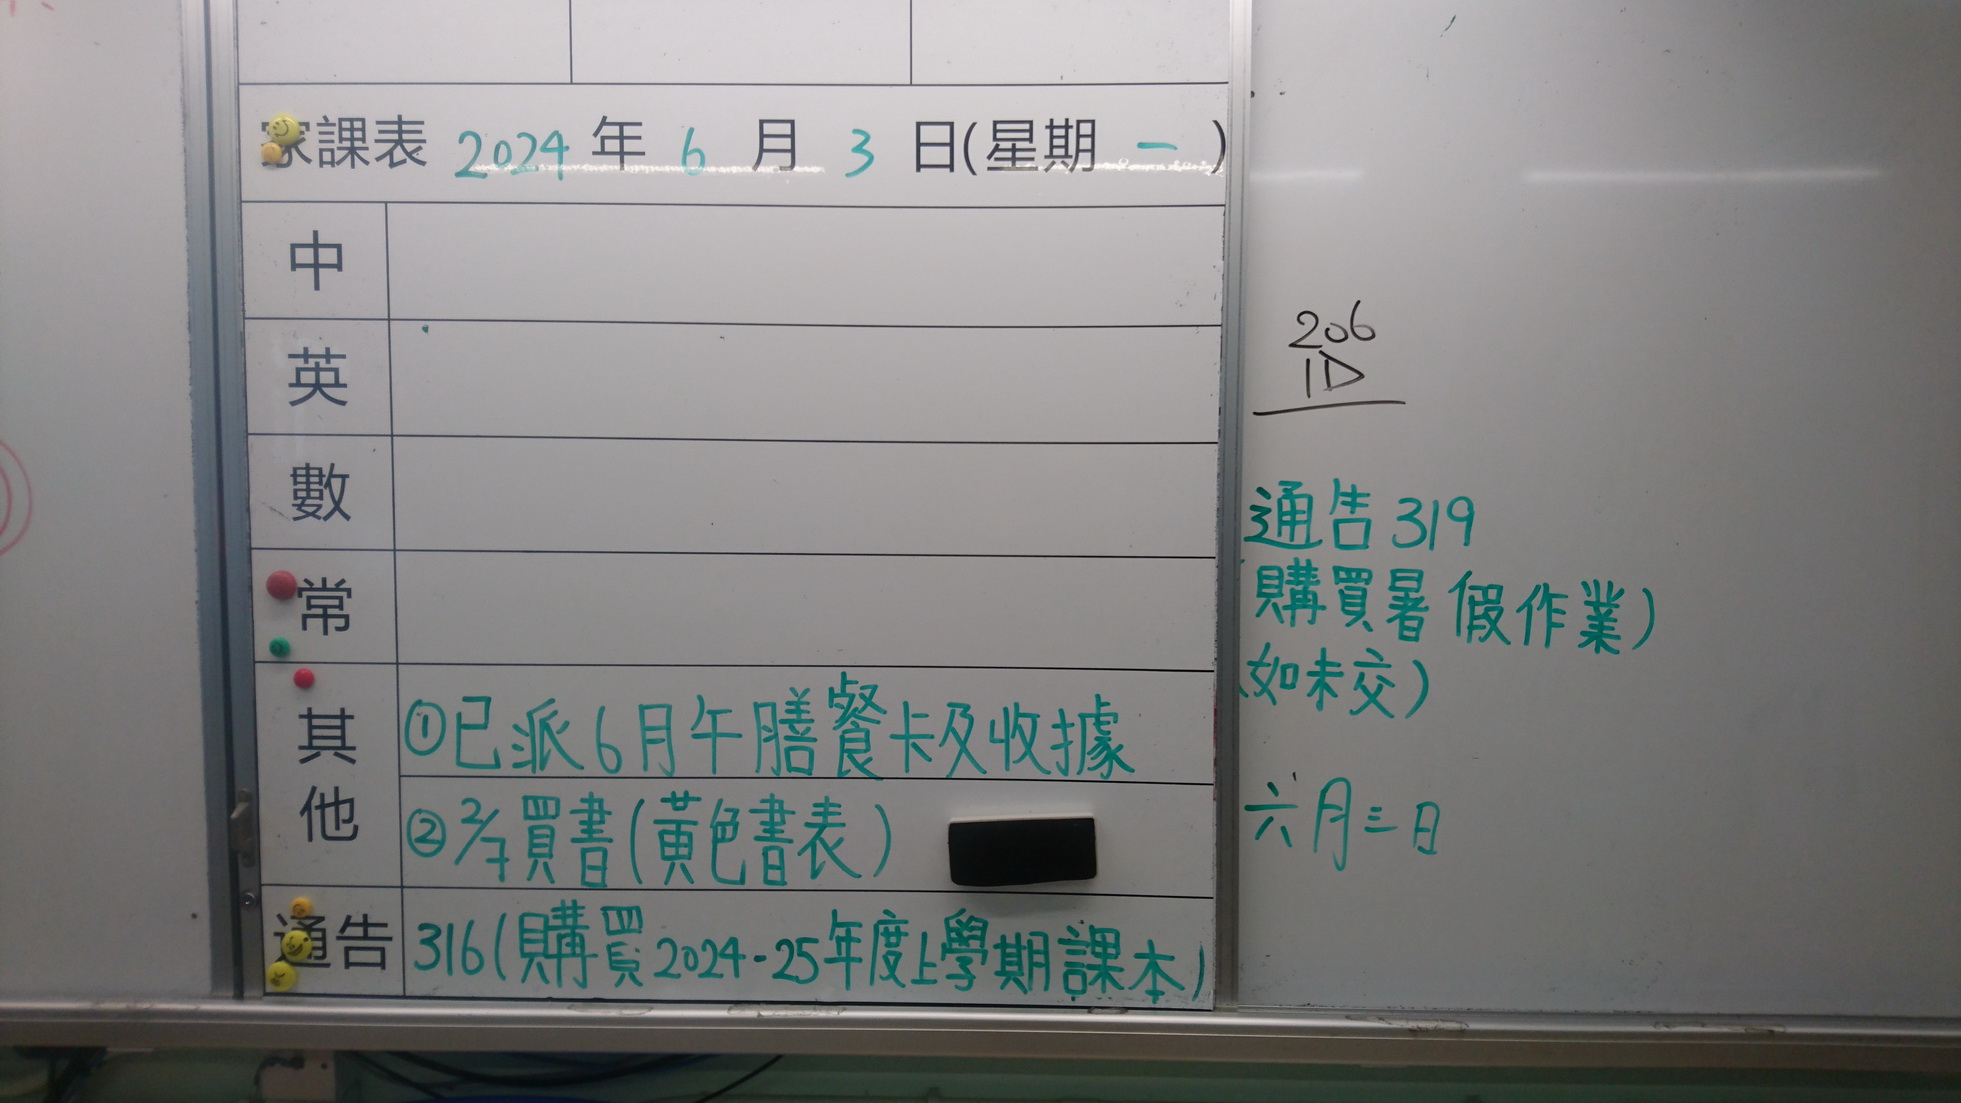 家課表 2024 年 6 月 3 日(星期 一 )
中
英
數
常
其他
①已派6月午膳餐卡及收據
②2/7買書(黃色書表)
通告 316(購買2024-25年度上學期課本)
206
1D
通告319
(購買暑假作業)
(如未交)
六月三日